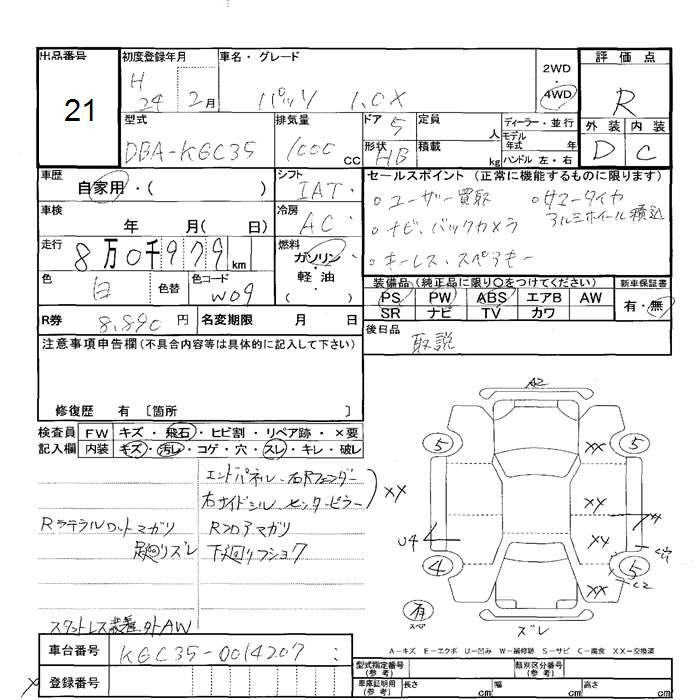 出品番号
21
初度登録年月
H
24 2月
車名・グレード
パッソ 1.0X
2WD
・
4WD
評価点
R
型式
DBA-KGC35
排気量
1000 cc
ドア 5
形状 HB
定員 人
積載 kg
ディーラー・並行
モデル年式 年
ハンドル 左・右
外装 内装
D C
車歴
自家用・( )
シフト
IAT
セールスポイント (正常に機能するものに限ります)
○ユーザー買取 ○サマータイヤ
アルミホイール積込
○ナビ、バックカメラ
○キーレス・スペアキー
車検
年 月( 日)
冷房
AC
走行
8万0千979km
燃料
ガソリン
・
軽油
( )
色
白
色替
色コード
W09
装備品 (純正品に限り○をつけてください)
PS PW ABS エアB AW
SR ナビ TV カワ
新車保証書
有・無
R券 8,890円 名変期限 月 日
後日品
取説
注意事項申告欄 (不具合内容等は具体的に記入して下さい)
修復歴 有 [箇所 ]
検査員 FW キズ・飛石・ヒビ割・リペア跡・×要
記入欄 内装 キズ・汚レ・コゲ・穴・スレ・キレ・破レ
エンドパネル、右Rフェンダー
右サイドシル センターピラー XX
Rラテラルロットマガリ Rフロアマガリ
足廻リズレ 下廻リフショク
スタットレス装着、外AW
A2
5 XX 5
XX
U4 XX
4 XX 5
C2
有
スペア
ズレ
A-キズ E-エクボ U-凹み W-補修跡 S-サビ C-腐食 XX-交換済
車台番号 KGC35-0014207
登録番号
型式指定番号
(参考)
類別区分番号
(参考)
車庫証明用
(参考)
長さ cm 幅 cm 高さ cm